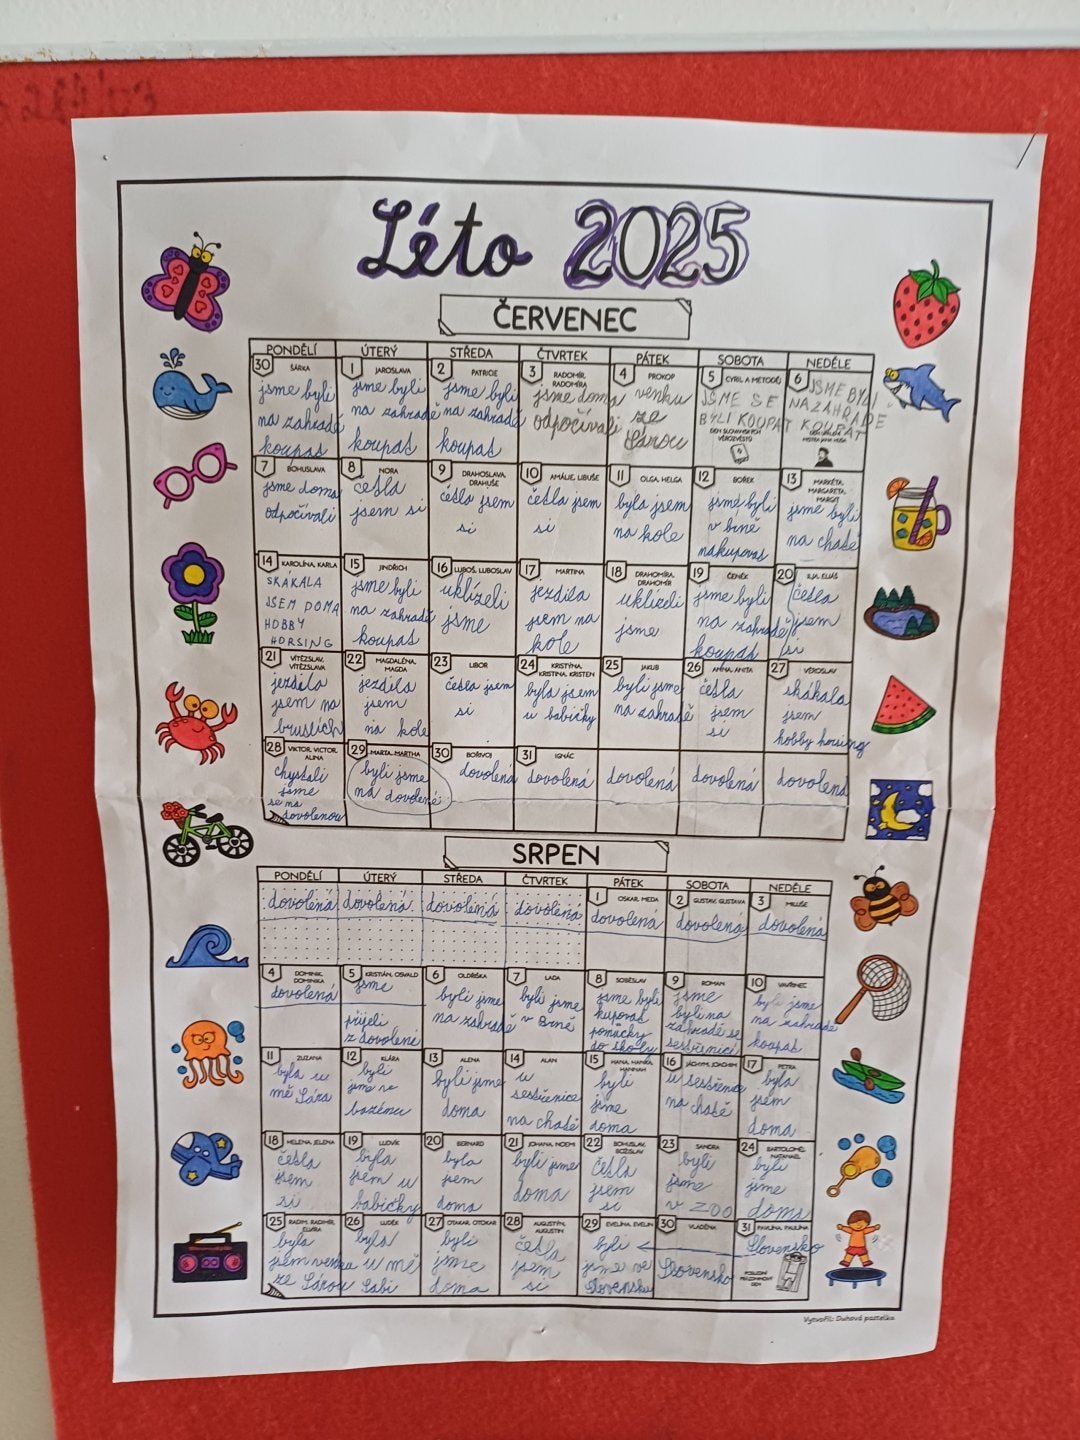 Léto 2025
ČERVENEC
PONDĚLÍ ÚTERÝ STŘEDA ČTVRTEK PÁTEK SOBOTA NEDĚLE
30 ŠÁRKA
jsme byli
na zahradě
koupat
1 JAROSLAVA
jsme byli
na zahradě
koupat
2 PATRICIE
jsme byli
na zahradě
koupat
3 RADOMÍR,
RADOMÍRA
jsme doma
odpočívali
4 PROKOP
venku
ze
Sárou
5 CYRIL A METODĚJ
JSME SE
BYLI KOUPAT
DEN SLOVANSKÝCH
VĚROZVĚSTŮ
6 JSME BYLI
NA ZAHRADĚ
KOUPAT
MISTRA JANA HUSA
7 BOHUSLAVA
jsme doma
odpočívali
8 NORA
četla
jsem si
9 DRAHOSLAVA,
DRAHUŠE
četla jsem
si
10 AMÁLIE, LIBUŠE
četla jsem
si
11 OLGA, HELGA
byla jsem
na kole
12 BOŘEK
jsme byli
v brně
nakupovat
13 MARKÉTA,
MARGARETA,
MARGIT
jsme byli
na chatě
14 KAROLÍNA, KARLA
SKÁKALA
JSEM DOMA
HOBBY
HORSING
15 JINDŘICH
jsme byli
na zahradě
koupat
16 LUBOŠ, LUBOSLAV
uklízeli
jsme
17 MARTINA
jezdila
jsem na
kole
18 DRAHOMÍRA,
DRAHOMÍR
uklízeli
jsme
19 ČENĚK
jsme byli
na zahradě
koupat
20 ILJA, ELIÁŠ
četla
jsem
si
21 VÍTĚZSLAV,
VÍTĚZSLAVA
jezdila
jsem na
bruslích
22 MAGDALÉNA,
MAGDA
jezdila
jsem
na kole
23 LIBOR
četla jsem
si
24 KRISTÝNA,
KRISTINA, KRISTEN
byla jsem
u babičky
25 JAKUB
byli jsme
na zahradě
26 ANNA, ANITA
četla
jsem
si
27 VĚROSLAV
skákala
jsem
hobby horsing
28 VIKTOR, VICTOR,
ALINA
chystali
jsme
se na
dovolenou
29 MARTA, MARTHA
byli jsme
na dovolené
30 BOŘIVOJ
dovolená
31 IGNÁC
dovolená
dovolená
dovolená
dovolená
SRPEN
PONDĚLÍ ÚTERÝ STŘEDA ČTVRTEK PÁTEK SOBOTA NEDĚLE
dovolená
dovolená
dovolená
dovolená
1 OSKAR, MEDA
dovolená
2 GUSTAV, GUSTAVA
dovolená
3 MILUŠE
dovolená
4 DOMINIK,
DOMINIKA
dovolená
5 KRISTIÁN, OSVALD
jsme
přijeli
z dovolené
6 OLDŘIŠKA
byli jsme
na zahradě
7 LADA
byli jsme
v Brně
8 SOBĚSLAV
jsme byli
kupovat
pomůcky
do školy
9 ROMAN
jsme
byli na
zahradě se
sestřenicí
10 VAVŘINEC
byli jsme
na zahradě
koupat
11 ZUZANA
byla u
mě Sára
12 KLÁRA
byli
jsme
bazénu
13 ALENA
byli jsme
doma
14 ALAN
u
sestřenice
na chatě
15 HANA, HANKA,
HANNAH
byli
jsme
doma
16 JÁCHYM, JOACHIM
u sestřenice
na chatě
17 PETRA
byla
jsem
doma
18 HELENA, JELENA
četla
jsem
si
19 LUDVÍK
byla
jsem u
babičky
20 BERNARD
byla
jsem
doma
21 JOHANA, NOEMI
byli jsme
doma
22 BOHUSLAV,
BOŽISLAV
četla
jsem
si
23 SANDRA
byli
jsme
v ZOO
24 BARTOLOMĚJ,
NATANAEL
byli
jsme
doma
25 RADIM, RADIMÍR,
ELVÍRA
byla
jsem venku
ze Sárou
26 LUDĚK
byla
u mě
Gabi
27 OTAKAR, OTOKAR
byli
jsme
doma
28 AUGUSTÝN,
AUGUSTIN
četla
jsem
si
29 EVELÍNA, EVELIN
byli
jsme ve
Slovensku
30 VLADĚNA
Slovensko
31 PAVLÍNA, PAULÍNA
Slovensko
POSLEDNÍ
PRÁZDNINOVÝ
DEN
Vytvořil: Duhová pastelka